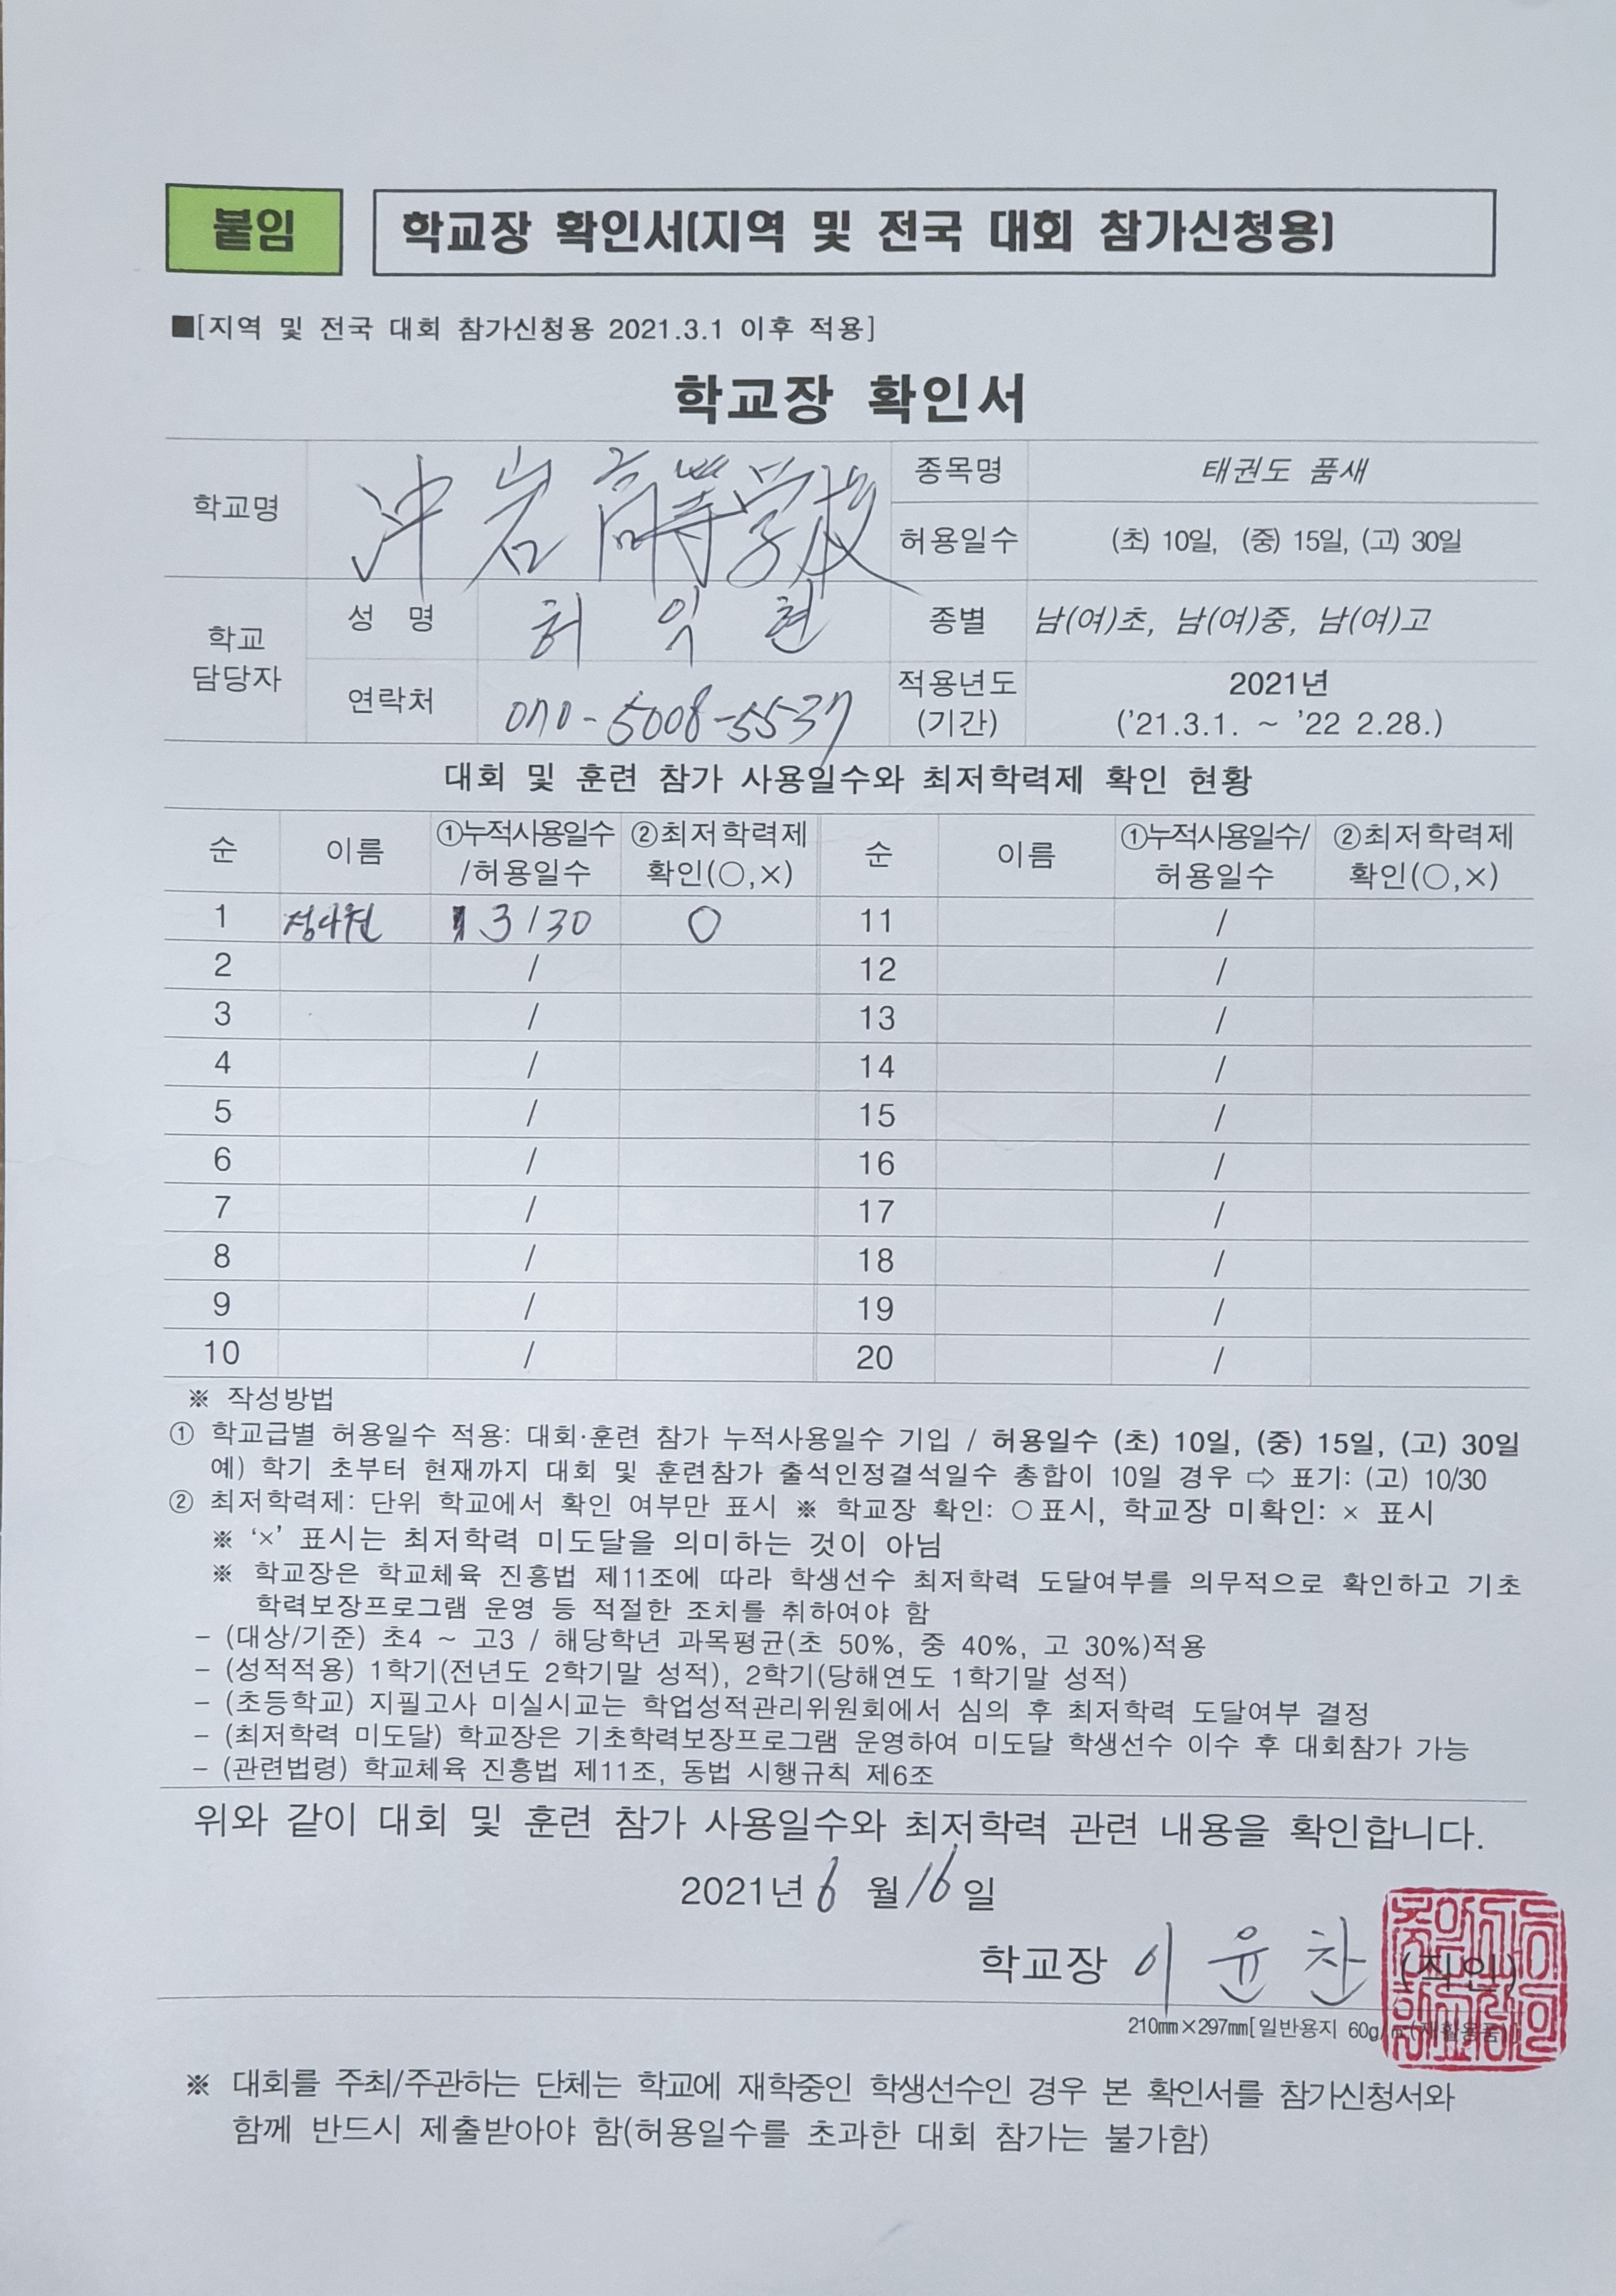 붙임
학교장 확인서(지역 및 전국 대회 참가신청용)
■[지역 및 전국 대회 참가신청용 2021.3.1 이후 적용]
학교장 확인서
학교명 冲岩高等学校 종목명 태권도 품새
허용일수 (초) 10일, (중) 15일, (고) 30일
학교 담당자 성 명 허 익 현 종별 남(여)초, 남(여)중, 남(여)고
연락처 070-5008-5537 적용년도 (기간) 2021년 ('21.3.1. ~ '22 2.28.)
대회 및 훈련 참가 사용일수와 최저학력제 확인 현황
순 이름 ①누적사용일수 /허용일수 ②최저학력제 확인(○,×) 순 이름 ①누적사용일수/ 허용일수 ②최저학력제 확인(○,×)
1 정다원 3/30 ○ 11 /
2 / 12 /
3 / 13 /
4 / 14 /
5 / 15 /
6 / 16 /
7 / 17 /
8 / 18 /
9 / 19 /
10 / 20 /
※ 작성방법
① 학교급별 허용일수 적용: 대회·훈련 참가 누적사용일수 기입 / 허용일수 (초) 10일, (중) 15일, (고) 30일
예) 학기 초부터 현재까지 대회 및 훈련참가 출석인정결석일수 총합이 10일 경우 ⇨ 표기: (고) 10/30
② 최저학력제: 단위 학교에서 확인 여부만 표시 ※ 학교장 확인: ○표시, 학교장 미확인: × 표시
※ '×' 표시는 최저학력 미도달을 의미하는 것이 아님
※ 학교장은 학교체육 진흥법 제11조에 따라 학생선수 최저학력 도달여부를 의무적으로 확인하고 기초
학력보장프로그램 운영 등 적절한 조치를 취하여야 함
- (대상/기준) 초4 ~ 고3 / 해당학년 과목평균(초 50%, 중 40%, 고 30%)적용
- (성적적용) 1학기(전년도 2학기말 성적), 2학기(당해연도 1학기말 성적)
- (초등학교) 지필고사 미실시교는 학업성적관리위원회에서 심의 후 최저학력 도달여부 결정
- (최저학력 미도달) 학교장은 기초학력보장프로그램 운영하여 미도달 학생선수 이수 후 대회참가 가능
- (관련법령) 학교체육 진흥법 제11조, 동법 시행규칙 제6조
위와 같이 대회 및 훈련 참가 사용일수와 최저학력 관련 내용을 확인합니다.
2021년 6 월 16 일
학교장 이 윤 찬 (직인)
210㎜×297㎜[일반용지 60g/㎡(재활용품)]
※ 대회를 주최/주관하는 단체는 학교에 재학중인 학생선수인 경우 본 확인서를 참가신청서와
함께 반드시 제출받아야 함(허용일수를 초과한 대회 참가는 불가함)